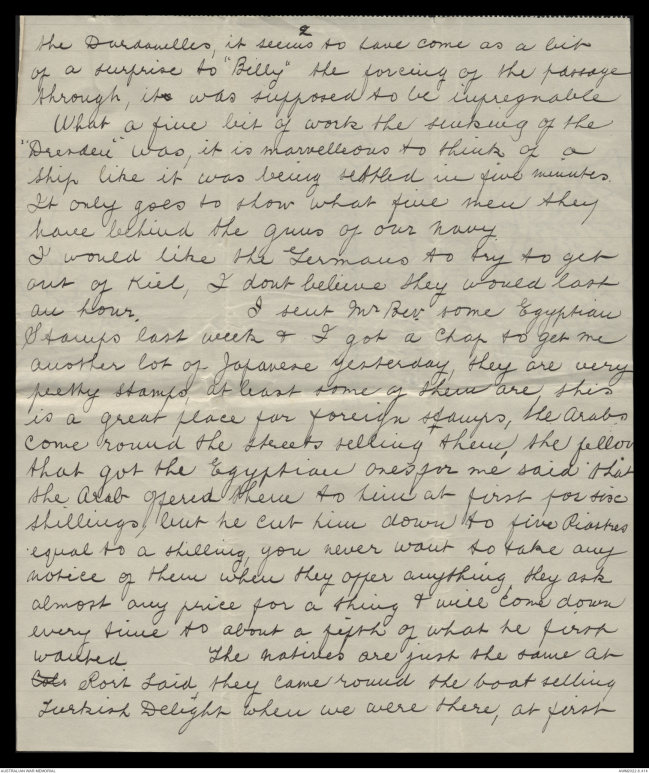 2
the Dardanelles, it seems to have come as a bit
of a surprise to "Billy" the forcing of the passage
through, it was supposed to be inpregnable
What a fine bit of work the sinking of the
"Dresden" was, it is marvelleous to think of a
ship like it was being settled in five minutes.
It only goes to show what fine men they
have behind the guns of our navy.
I would like the Germans to try to get
out of Kiel, I dont believe they would last
an hour. I sent Mr Bev. some Egyptian
Stamps last week & I got a chap to get me
another lot of Japanese yesterday, they are very
pretty stamps, at least some of them are, this
is a great place for foreign stamps, the Arabs
come round the streets selling them, the fellow
that got the Egyptian ones for me said that
the Arab offered them to him at first for six
shillings, but he cut him down to five Piastres
equal to a shilling, you never want to take any
notice of them when they offer anything, they ask
almost any price for a thing & will come down
every time to about a fifth of what he first
wanted. The natives are just the same at
Port Said, they came round the boat selling
Turkish Delight when we were there, at first
AUSTRALIAN WAR MEMORIAL